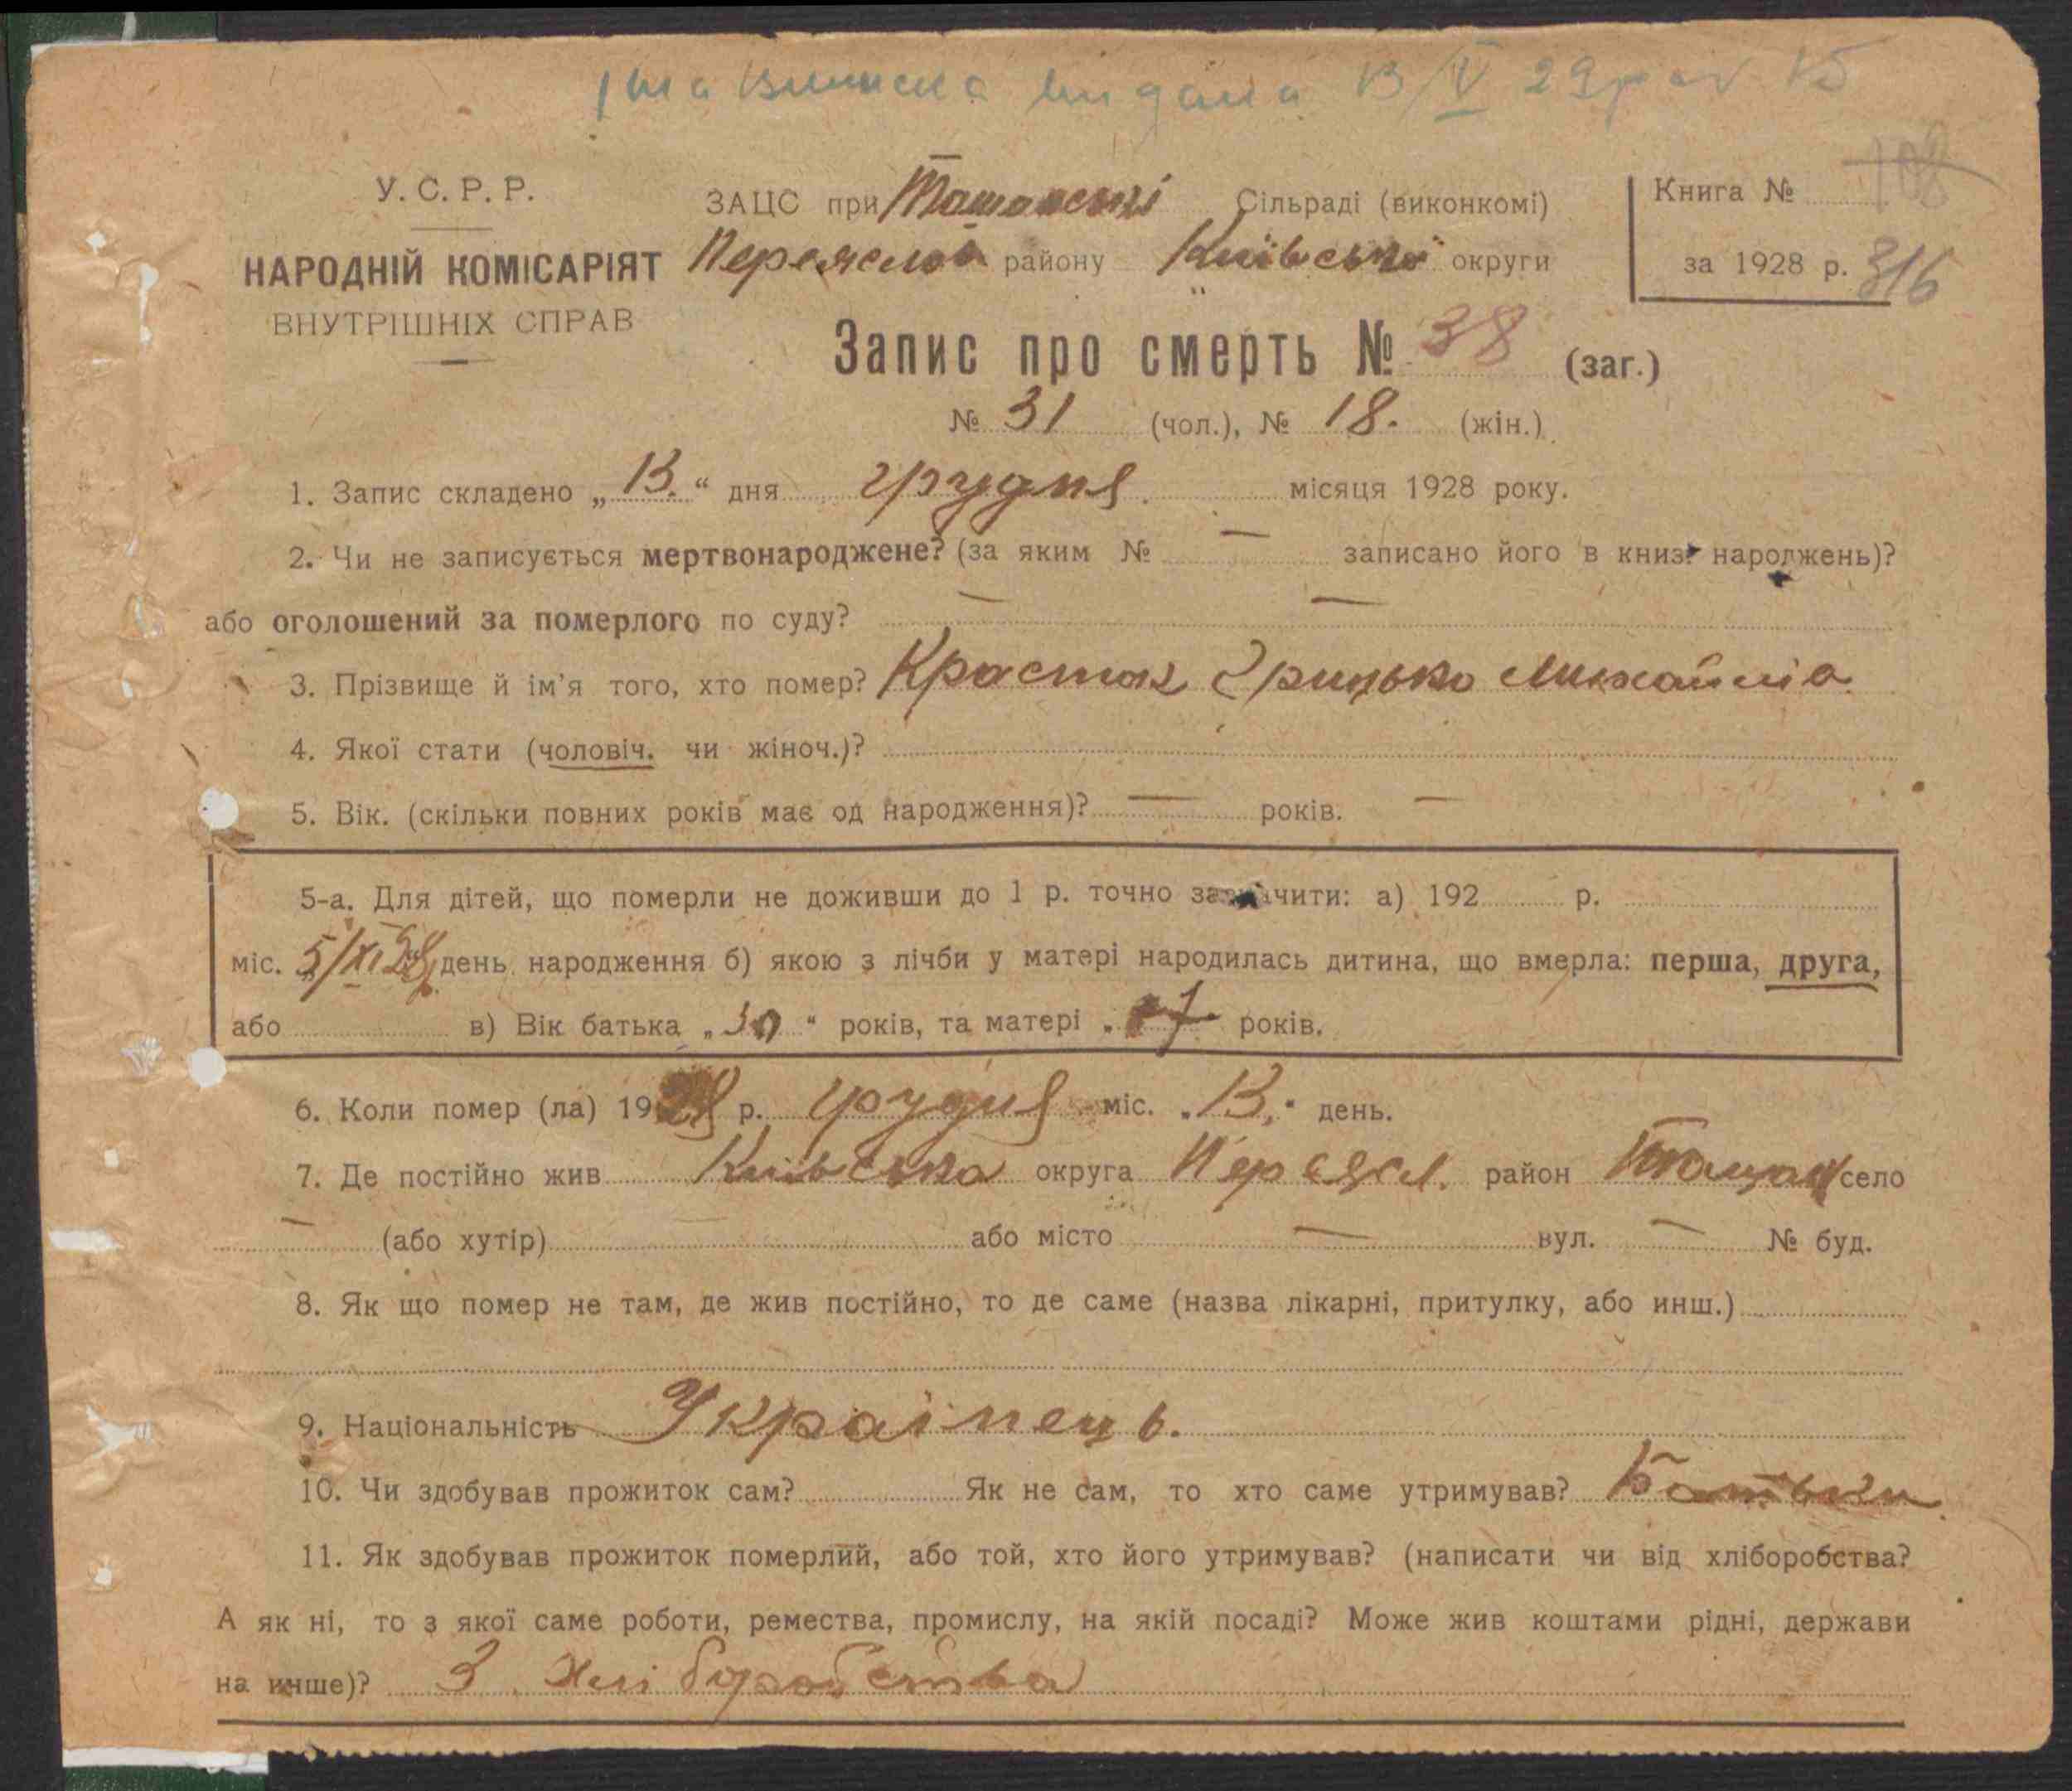 виписка видана 13/V 29р
У. С. Р. Р.
НАРОДНІЙ КОМІСАРІЯТ
ВНУТРІШНІХ СПРАВ
ЗАЦС при Ташанські Сільраді (виконкомі)
Переяслов району Київської округи
Книга № 108
за 1928 р. 316
Запис про смерть № 38 (заг.)
№ 31 (чол.), № 18. (жін.)
1. Запис складено „13.“ дня грудня місяця 1928 року.
2. Чи не записується мертвонароджене? (за яким № — записано його в книзі народжень)?
або оголошений за померлого по суду? — —
3. Прізвище й ім'я того, хто помер? Грицько Михайлів
4. Якої стати (чоловіч. чи жіноч.)?
5. Вік. (скільки повних років має од народження)? — років. —
5-а. Для дітей, що померли не доживши до 1 р. точно зазначити: а) 192 р.
міс. 5/XI 28р. день народження б) якою з лічби у матері народилась дитина, що вмерла: перша, друга,
або в) Вік батька „30“ років, та матері „ років.
6. Коли помер (ла) 1928 р. грудня міс. „13.“ день.
7. Де постійно жив Київська округа Переясл. район Ташань село
— (або хутір) або місто — вул. — № буд.
8. Як що помер не там, де жив постійно, то де саме (назва лікарні, притулку, або инш.)
9. Національність Українець.
10. Чи здобував прожиток сам? Як не сам, то хто саме утримував? Батьки
11. Як здобував прожиток померлий, або той, хто його утримував? (написати чи від хліборобства?
А як ні, то з якої саме роботи, ремества, промислу, на якій посаді? Може жив коштами рідні, держави
на инше)? З Хліборобства